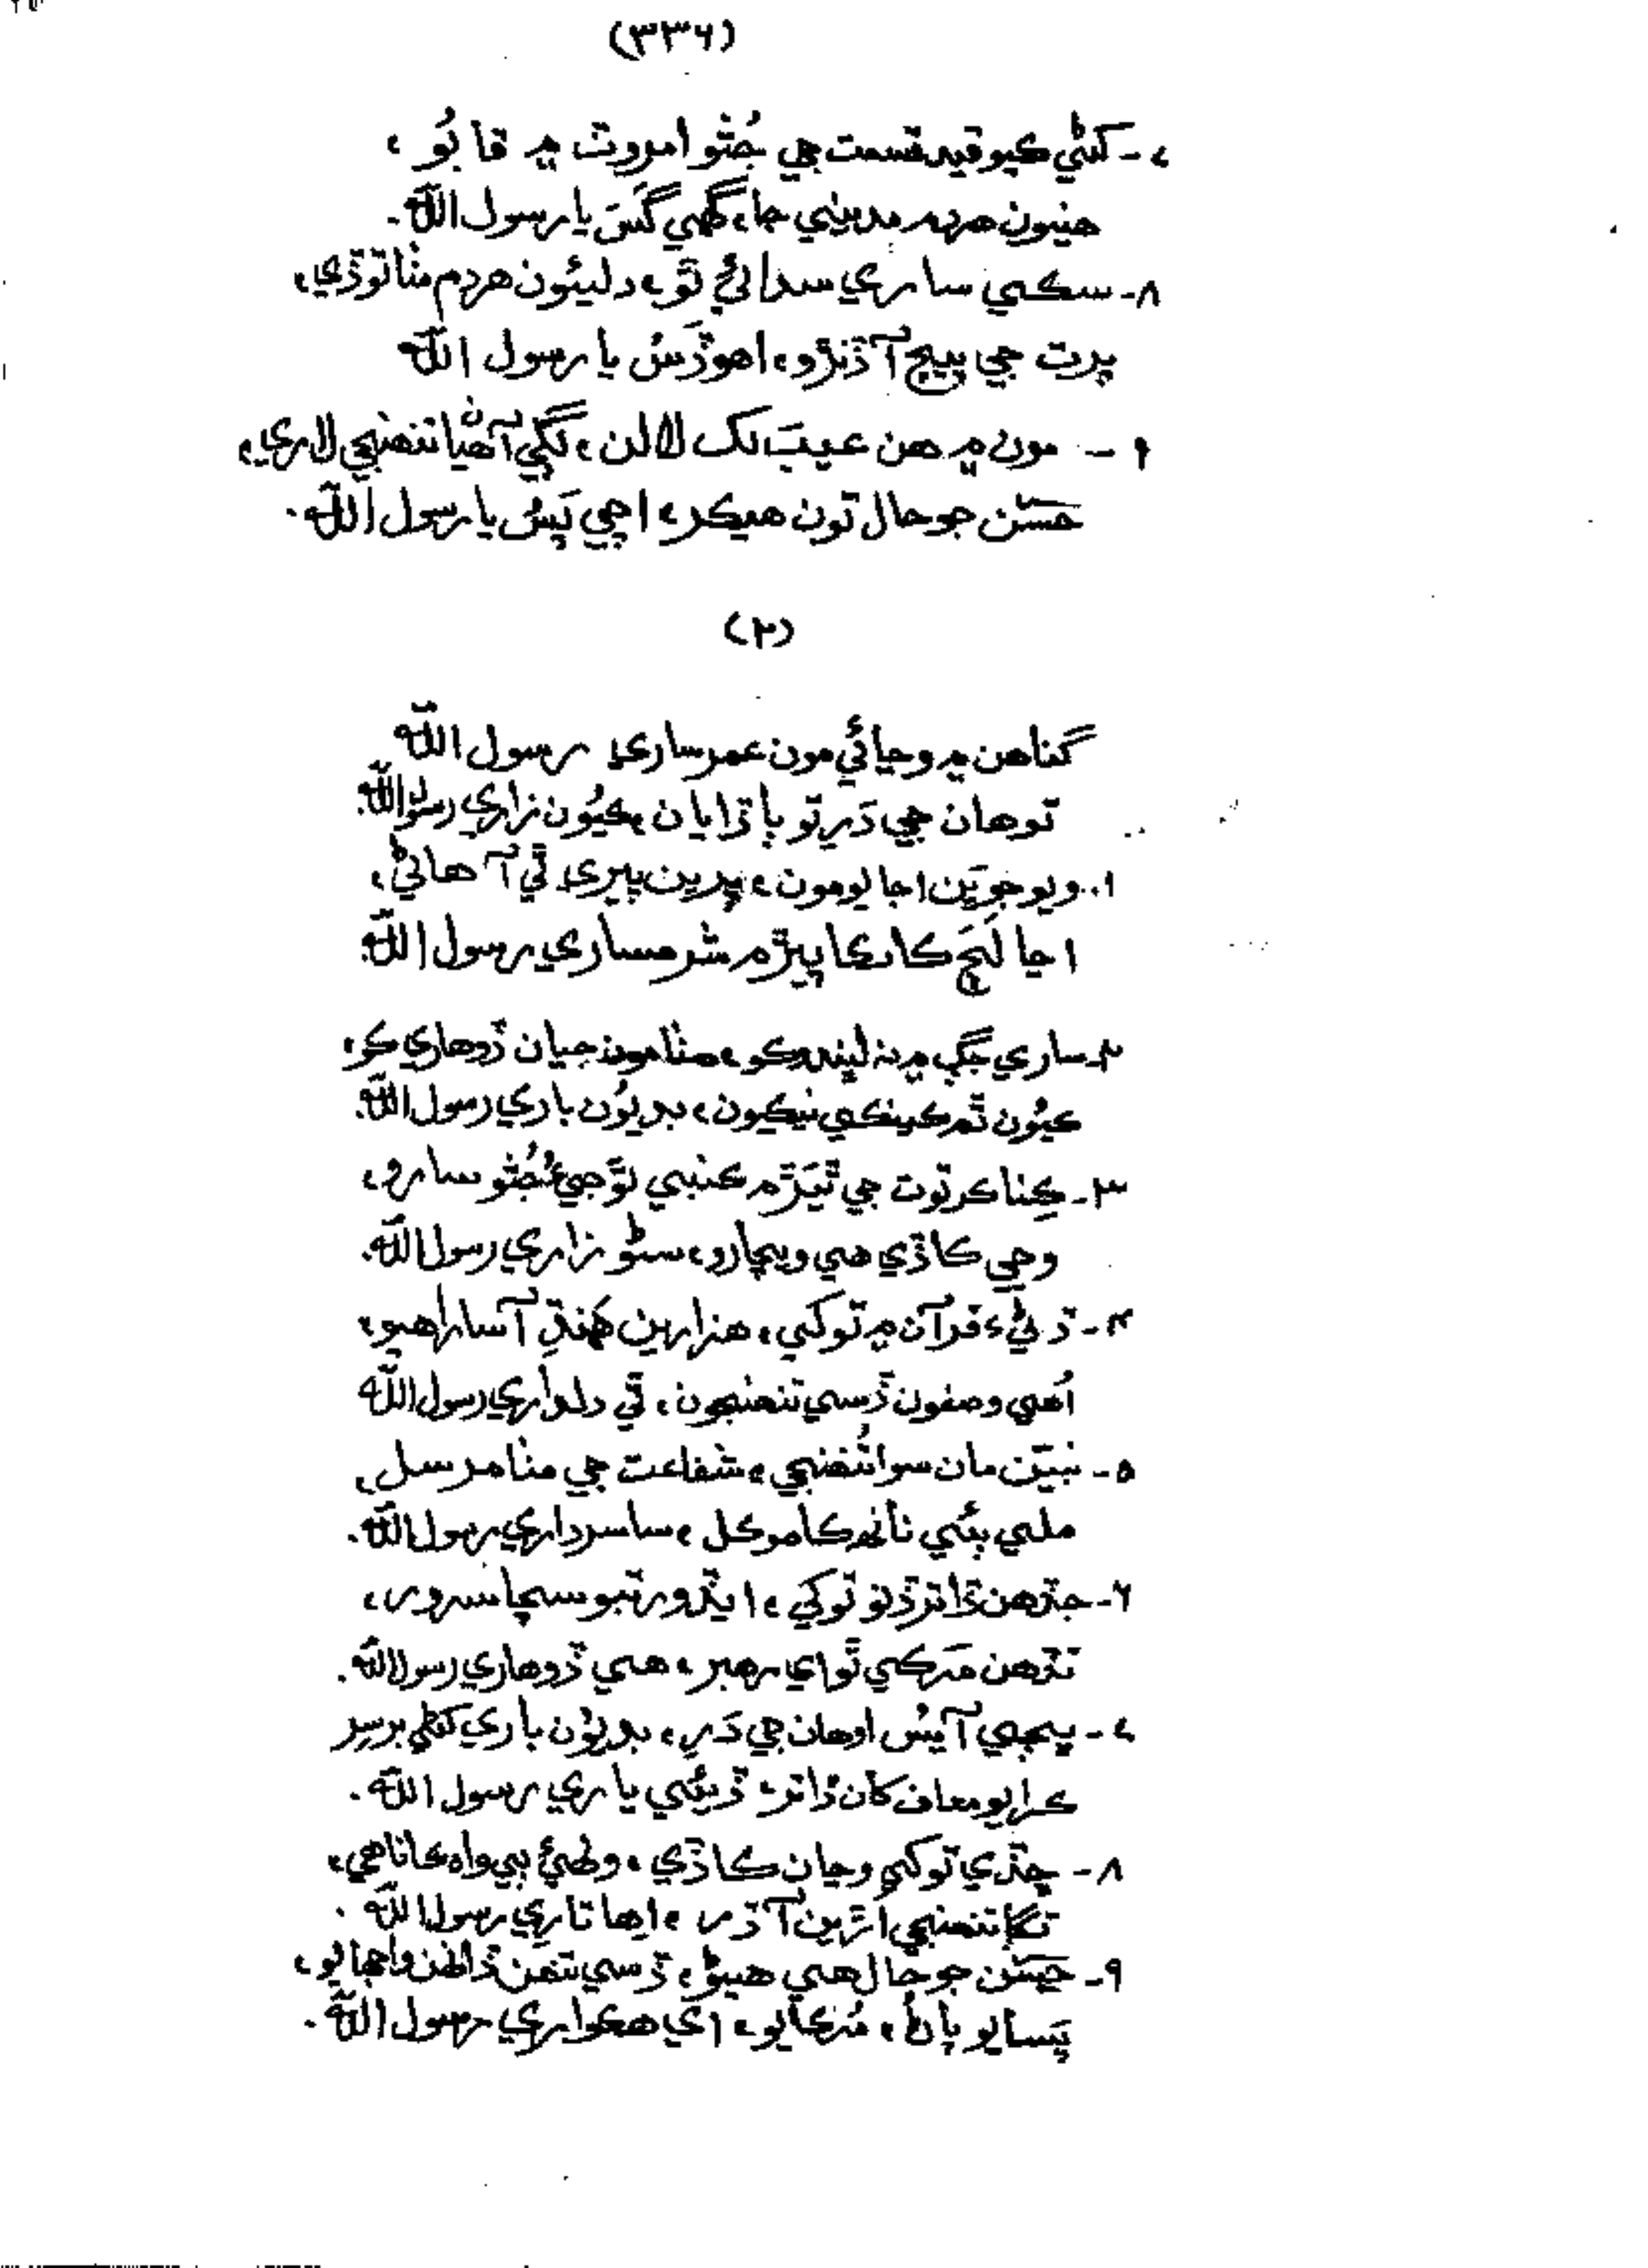 (٣٣٦)
٧- کڻي ڪيو قيد قسمت جي جُثو امروٽ ۾ قابُو،
هنيون هردم مديني جا، گهمي گَسَ يا رسول اللہ.
٨- سڪي ساري سدائي ٿو، دليئون هردم مٺا توڏي،
پرت جي پيچ آڏنڙو، اهو ڏَسُ يا رسول اللہ
٩- مون ۾ هن عيبَ لک لالن، لڳي آهيان تنهنجي لاري،
حسَن جو حال تون هيڪر، اچي پَسُ يا رسول اللہ.
(٢)
گناهن ۾ وڃائي مون عمر ساري رسول اللہ
توهان جي دَرِ تو ٻاڏايان، ڪيُون زاري رسول اللہ.
١- ويو جوڀَن اجايو مون، پيرين پيري ٿي آ هاڻي،
اڃا لَڄَ ڪا پيڙم شرمساري رسول اللہ.
٢- ساري جڳ ۾ نہ لڀندو ڪو، مٺا مون جيان ڏوهاري ڪو،
ڪيُون تم ڪينڪي نيڪيون، بديُون باري رسول اللہ.
٣- ڪِنا ڪرتوت جي ٿيَڙم ڪنبي ٿو جيءُ جُثو سارو،
وڃي ڪاڏي هي ويچارو، سڻو زاري رسول اللہ.
٤- ڌڻيءَ قرآن ۾ توکي، هزارين هَنڌِ آ ساراهيو،
اُهي وصفون ڏسي تنهنجون، ٿي دلداري رسول اللہ
٥- نبيَن مان سوا تنهنجي، شفاعت جي مٺا مرسل،
ملي ٻئي نانهہ ڪا موڪل، سا سرداري رسول اللہ.
٦- جڏهن ڏاتر ڏنو توکي، ايڏو رتبو سچا سرور،
تڏهن مَرڪي ٿو اي رهبر، هي ڏوهاري رسول اللہ.
٧- ڀڃي آيُس اوهان جي دَرِ، بديُون باري کڻي بر سِر
ڪرايو معاف کان ڏاتر، ڏيئي ياري رسول اللہ.
٨- ڇڏي توکي وڃان ڪاڏي، ولهيءَ ٻي واهہ ڪا ناهي،
تڳا تنهنجي اڙين آڌر، اها تاري رسول اللہ.
٩- حسَن جو حال هي هيڻو، ڏسي تنهن ڏانهن واجهايو،
پسايو پاڻُ، مُرڪايو، اي هڪواري رسول اللہ.